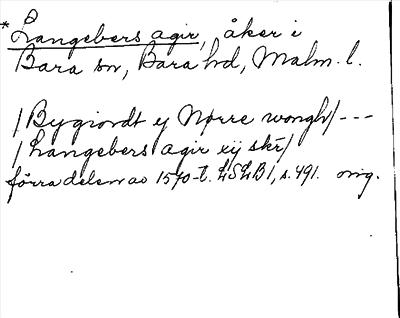 *Langebers agir, åker i
Bara sn, Bara hd, Malm. l.
/Bygiordt y Nørre wongh/---
/Langebers agir xij sk̄r/
förra delen av 1570-t. LSLB1, s. 491. orig.